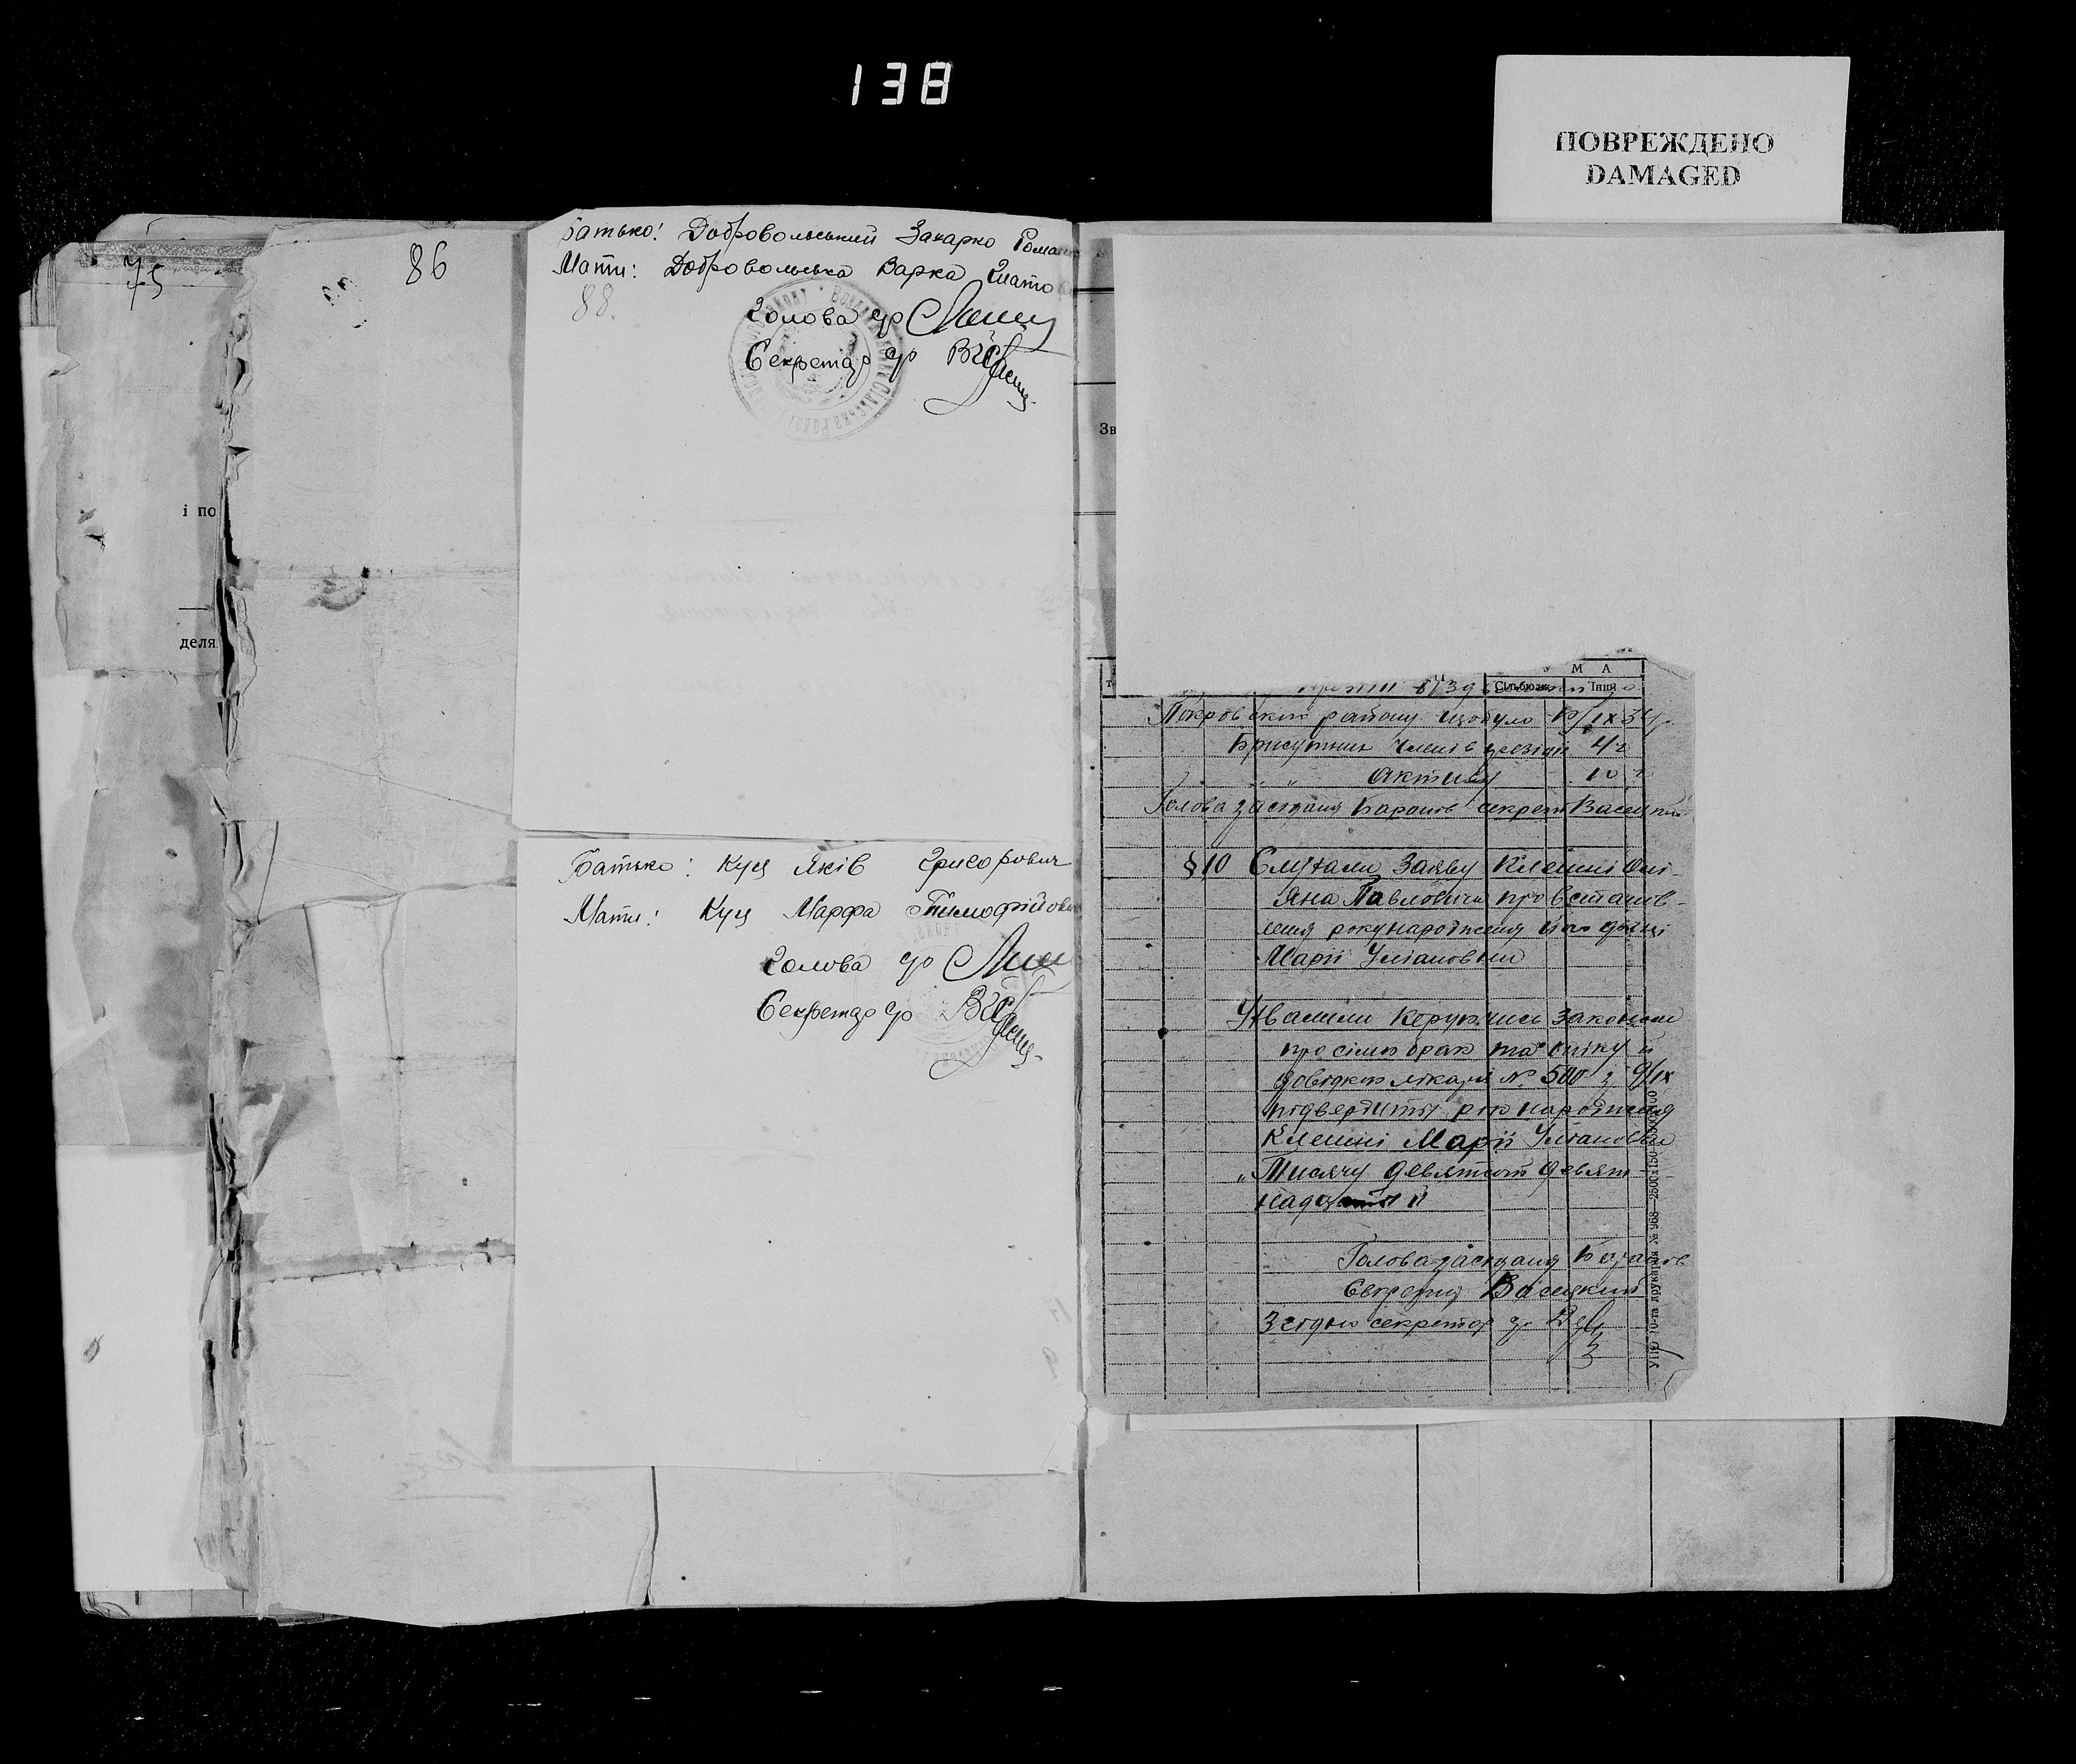 138
ПОВРЕЖДЕНО
DAMAGED
75
і по
деля
86
Батько: Добровольський Захарко Рома
Мати: Добровольська Варка Гнато
88.
Голова с/р
Секретар с/р
Батько: Куц Яків Григорович
Мати: Куц Марфа Тимофійовн
Голова с/р
Секретар с/р
Зв
М А
Сільбюдж Інші
Покровського району що було 10/IX 34 р
Присутних членів президії 4 ч
" Активу 10 ч
Голова засідання Баранів секрет Васецький
§ 10 Слухали Заяву Клешні Юлі-
яна Павловича про встанов-
лення року народження його дочці
Марії Уліановни
Ухвалили Керуючись законом
про сімю брак та опіку й
довідкою лікаря № 500 з 9/IX
підвердити рік народження
Клешні Марії Уліановни
„Тисячу девятсот девят-
надцят й
Голова засідання Баранів
Секретар Васецький
З гідно секретар с/р
УПП 10-та друкарня № 968—2500×150